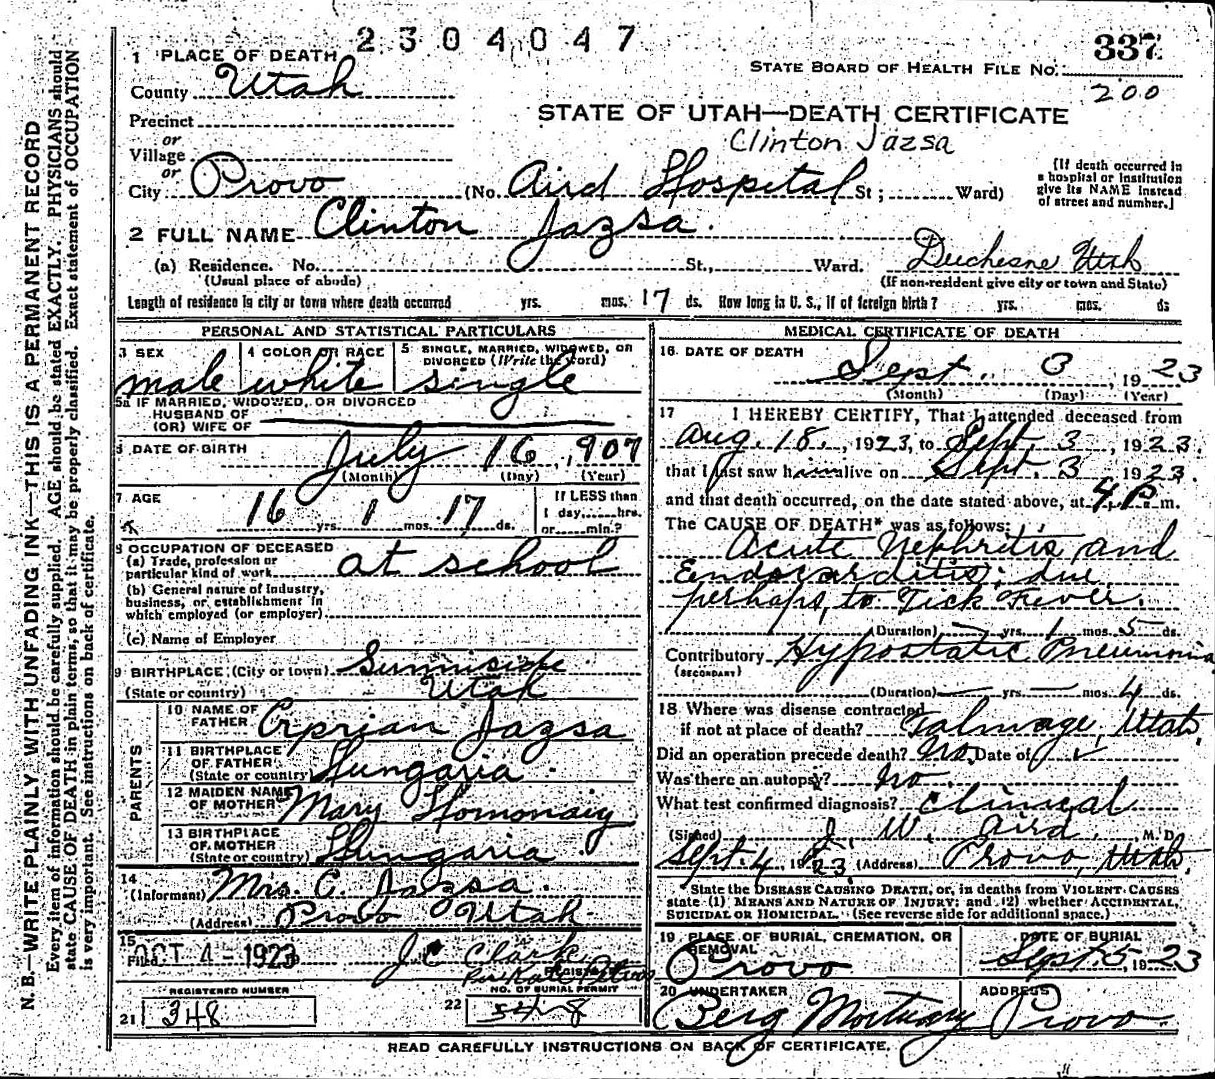 2304047
337
STATE BOARD OF HEALTH FILE No.
200
1 PLACE OF DEATH
County Utah
STATE OF UTAH—DEATH CERTIFICATE
Clinton Jazsa
Precinct
or
Village
or
City Provo (No. Aird Hospital St; Ward)
(If death occurred in a hospital or institution give its NAME instead of street and number.)
2 FULL NAME Clinton Jazsa.
(a) Residence. No. St., Ward. Duchesne Utah
(Usual place of abode) (If non-resident give city or town and State)
Length of residence in city or town where death occurred yrs. mos. 17 ds. How long in U. S., if of foreign birth? yrs. mos. ds
PERSONAL AND STATISTICAL PARTICULARS
3 SEX male
4 COLOR OR RACE white
5 SINGLE, MARRIED, WIDOWED, OR DIVORCED (Write the word) single
5a IF MARRIED, WIDOWED, OR DIVORCED
HUSBAND OF
(OR) WIFE OF
6 DATE OF BIRTH July 16, 1907
(Month) (Day) (Year)
7 AGE 16 yrs. 1 mos. 17 ds.
If LESS than
1 day, hrs.
or min.?
8 OCCUPATION OF DECEASED
(a) Trade, profession or particular kind of work at school
(b) General nature of industry, business, or establishment in which employed (or employer)
(c) Name of Employer
9 BIRTHPLACE (City or town) Sunniside
(State or country) Utah
PARENTS
10 NAME OF FATHER Cyprian Jazsa
11 BIRTHPLACE OF FATHER (State or country) Hungaria
12 MAIDEN NAME OF MOTHER Mary
13 BIRTHPLACE OF MOTHER (State or country) Hungaria
14 (Informant) Mrs. C. Jazsa.
(Address) Provo Utah
15 Filed OCT 4 - 1923 J C Clark
REGISTRAR
REGISTERED NUMBER
21 348
NO. OF BURIAL PERMIT
22
MEDICAL CERTIFICATE OF DEATH
16 DATE OF DEATH
Sept. 3, 1923
(Month) (Day) (Year)
17 I HEREBY CERTIFY, That I attended deceased from
Aug. 18., 1923, to Sept. 3, 1923.
that I last saw h alive on Sept. 3 1923.
and that death occurred, on the date stated above, at 4 P. m.
The CAUSE OF DEATH* was as follows:
Acute Nephritis and
Endocarditis; due
perhaps, to Tick Fever.
(Duration) — yrs. 1 mos. 5 ds.
Contributory Hypostatic Pneumonia
(SECONDARY)
(Duration) — yrs — mos. 4 ds.
18 Where was disease contracted
if not at place of death? Talmage, Utah,
Did an operation precede death? No. Date of
Was there an autopsy? No
What test confirmed diagnosis? Clinical
(Signed) J. W. Aird. M. D.
Sept. 4 1923. (Address) Provo, Utah
State the DISEASE CAUSING DEATH, or, in deaths from VIOLENT CAUSES
state (1) MEANS AND NATURE OF INJURY; and (2) whether ACCIDENTAL,
SUICIDAL OR HOMICIDAL. (See reverse side for additional space.)
19 PLACE OF BURIAL, CREMATION, OR REMOVAL
Provo
DATE OF BURIAL
Sept. 5, 1923
20 UNDERTAKER
Berg Mortuary
ADDRESS
Provo.
READ CAREFULLY INSTRUCTIONS ON BACK OF CERTIFICATE.
N. B.—WRITE PLAINLY WITH UNFADING INK—THIS IS A PERMANENT RECORD
Every item of information should be carefully supplied. AGE should be stated EXACTLY. PHYSICIANS should
state CAUSE OF DEATH in plain terms, so that it may be properly classified. Exact statement of OCCUPATION
is very important. See instructions on back of certificate.